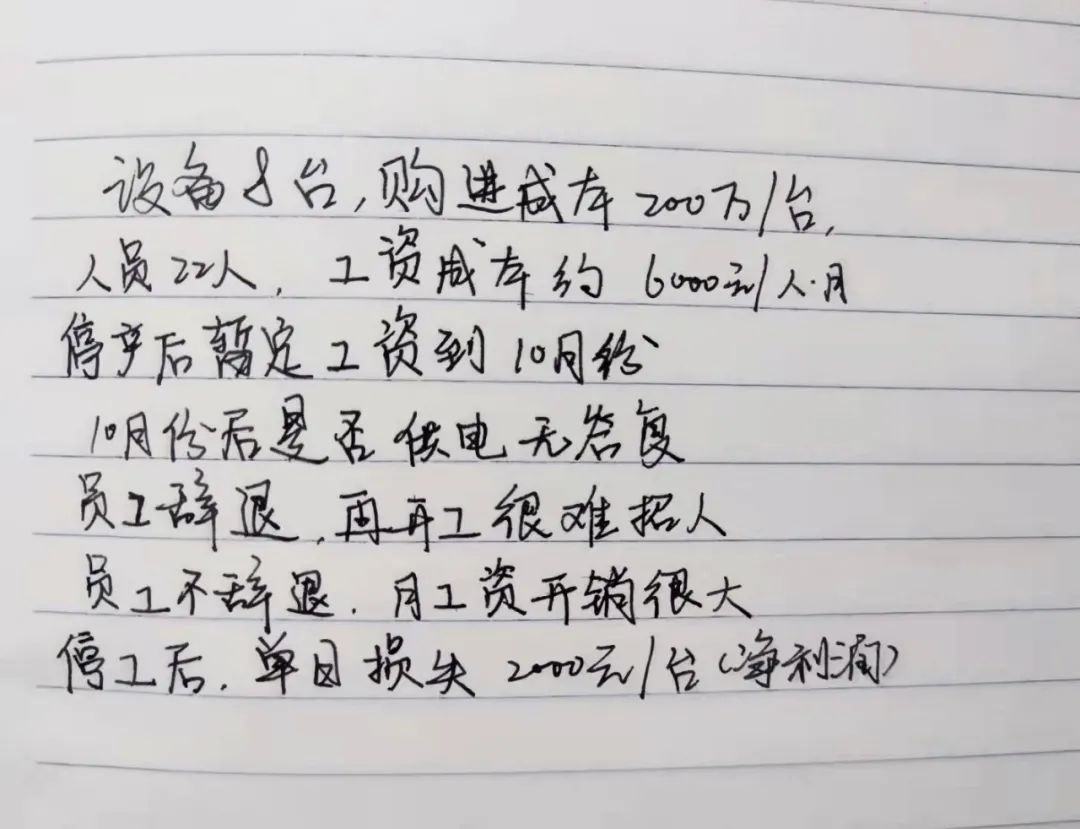 设备8台,购进成本200万/台,
人员22人,工资成本约6000元/人·月
停产后暂定工资到10月份
10月份后是否供电无答复
员工辞退,再开工很难招人
员工不辞退,月工资开销很大
停工后,单日损失2000元/台(净利润)